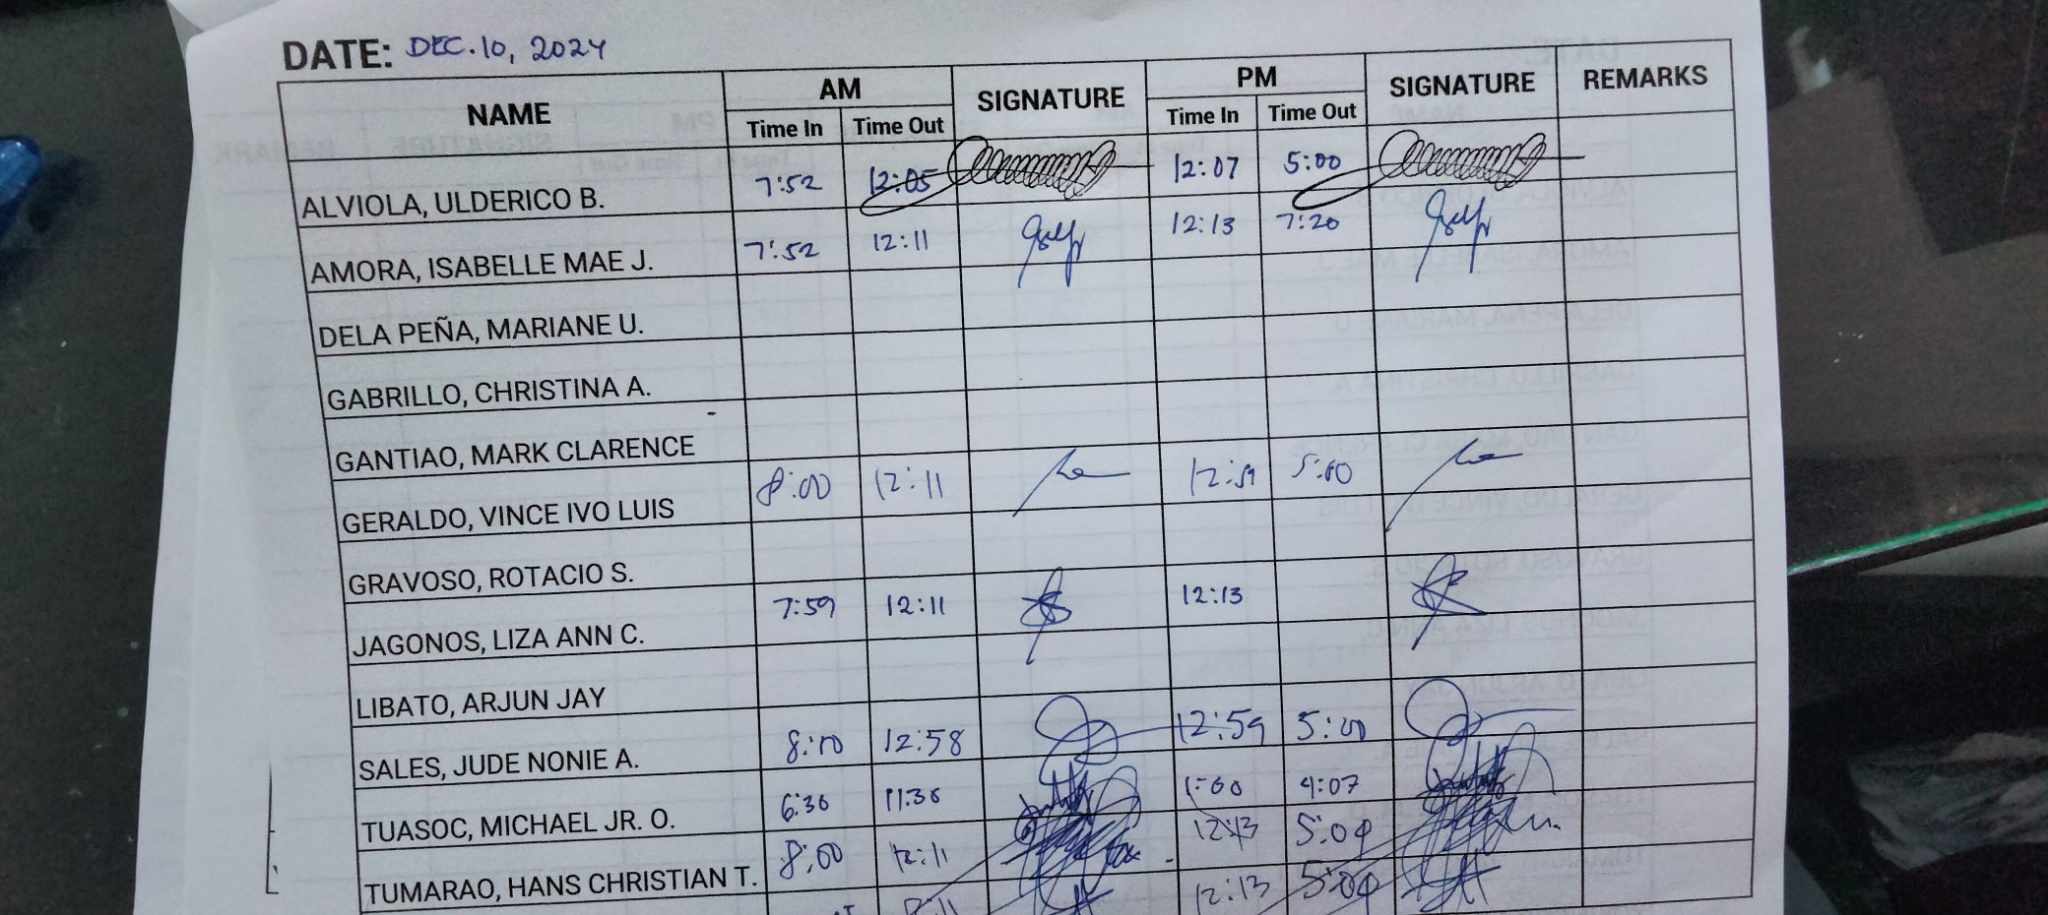 DATE: DEC. 10, 2024
NAME AM SIGNATURE PM SIGNATURE REMARKS
Time In Time Out Time In Time Out
ALVIOLA, ULDERICO B. 7:52 12:05 12:07 5:00
AMORA, ISABELLE MAE J. 7:52 12:11 12:13 7:20
DELA PEÑA, MARIANE U.
GABRILLO, CHRISTINA A.
GANTIAO, MARK CLARENCE
GERALDO, VINCE IVO LUIS 8:00 12:11 12:59 5:00
GRAVOSO, ROTACIO S.
JAGONOS, LIZA ANN C. 7:59 12:11 12:13
LIBATO, ARJUN JAY
SALES, JUDE NONIE A. 8:00 12:58 12:59 5:00
TUASOC, MICHAEL JR. O. 6:30 11:30 1:00 4:07
TUMARAO, HANS CHRISTIAN T. 8:00 12:11 12:13 5:09
12:13 5:09